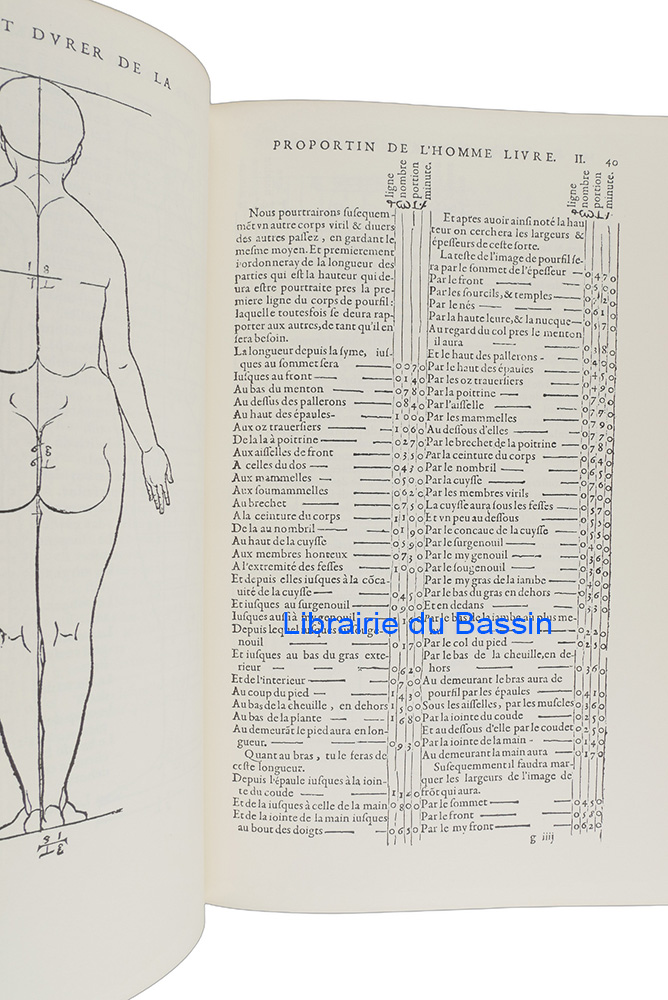 T DVRER DE LA
PROPORTIN DE L'HOMME LIVRE. II. 40
ligne
nombre
portion
minute.
Nous pourtrairons suſequem-
mẽt vn autre corps viril & diuers
des autres paſſez, en gardant le
meſme moyen. Et premierement
i'ordonneray de la longueur des
parties qui eſt la hauteur qui de-
ura eſtre pourtraite pres la pre-
miere ligne du corps de pourfil:
laquelle toutesfois ſe deura rap-
porter aux autres, de tant qu'il en
ſera beſoin.
La longueur depuis la ſyme, iuſ-
ques au ſommet ſera 0 0 7 0
Iuſques au front 0 1 4 0
Au bas du menton 0 7 8 0
Au deſſus des pallerons 0 8 4 0
Au haut des eſpaules 1 0 0 0
Aux oz trauerſiers 1 0 6 0
De la à poitrine 0 2 7 0
Aux aiſſelles de front 0 3 5 0
A celles du dos 0 4 3 0
Aux mammelles 0 5 0 0
Aux ſoumammelles 0 6 2 0
Au brechet 0 7 5 0
A la ceinture du corps 1 1 0 0
De la au nombril 0 1 9 0
Au haut de la cuyſſe 0 5 9 0
Aux membres honteux 0 7 3 0
A l'extremité des feſſes 1 0 0 0
Et depuis elles iuſques à la cõca-
uité de la cuyſſe 0 4 5 0
Et iuſques au ſurgenouil 0 9 0 0
Iuſques auſſi à my genouil
Depuis lequel iuſques au ſouge-
nouil 0 1 7 0
Et iuſques au bas du gras exte-
rieur 0 6 2 0
Et de l'interieur 0 7 0 0
Au coup du pied 1 4 3 0
Au bas de la cheuille, en dehors 1 5 0 0
Au bas de la plante 1 6 8 0
Au demeurãt le pied aura en lon-
gueur. 0 9 3 0
Quant au bras, tu le feras de
ceſte longueur.
Depuis l'épaule iuſques à la ioin-
te du coude 1 1 4 0
Et de la iuſques à celle de la main 0 8 0 0
Et de la iointe de la main iuſques
au bout des doigts 0 6 5 0
ligne
nombre
portion
minute.
Et apres auoir ainſi noté la hau
teur on cherchera les largeurs &
épeſſeurs de ceſte ſorte.
La teſte de l'image de pourfil ſe-
ra par le ſommet de l'épeſſeur 0 4 7 0
Par le front 0 5 0 0
Par les ſourcils, & temples
Par le nés 0 6 1 0
Par la haute leure, & la nucque 0 5 7 0
Au regard du col pres le menton
il aura 0 3 8 0
Et le haut des pallerons
Par le haut des épaules
Par les oz trauerſiers
Par la poitrine
Par l'aiſſelle
Par les mammelles
Au deſſous d'elles
Par le brechet de la poitrine 0 7 8 0
Par la ceinture du corps 0 6 4 0
Par le nombril
Par la cuyſſe
Par les membres virils
La cuyſſe aura ſous les feſſes
Et vn peu au deſſous
Par le concaue de la cuyſſe
Par le ſurgenouil
Par le my genouil
Par le ſougenouil
Par le my gras de la iambe
Par le bas du gras en dehors 0 3 6 0
Et en dedans 0 3 3 0
Par le bas de la iambe au plus me-
0 2 2 0
Par le col du pied 0 2 5 0
Par le bas de la cheuille, en de-
hors 0 3 6 0
Au demeurant le bras aura de
pourfil par les épaules 0 4 1 0
Sous les aiſſelles, par les muſcles 0 3 6 0
Par la iointe du coude 0 2 5 0
Et au deſſous d'elle par le coudet 0 2 5 0
Par la iointe de la main 0 1 4 0
Au demeurant la main aura 0 1 7 0
Suſequemment il faudra mar-
quer les largeurs de l'image de
frõt qui aura.
Par le ſommet 0 4 5 0
Par le front 0 5 8 0
Par le my front 0 6 2 0
g iiij
Librairie du Bassin